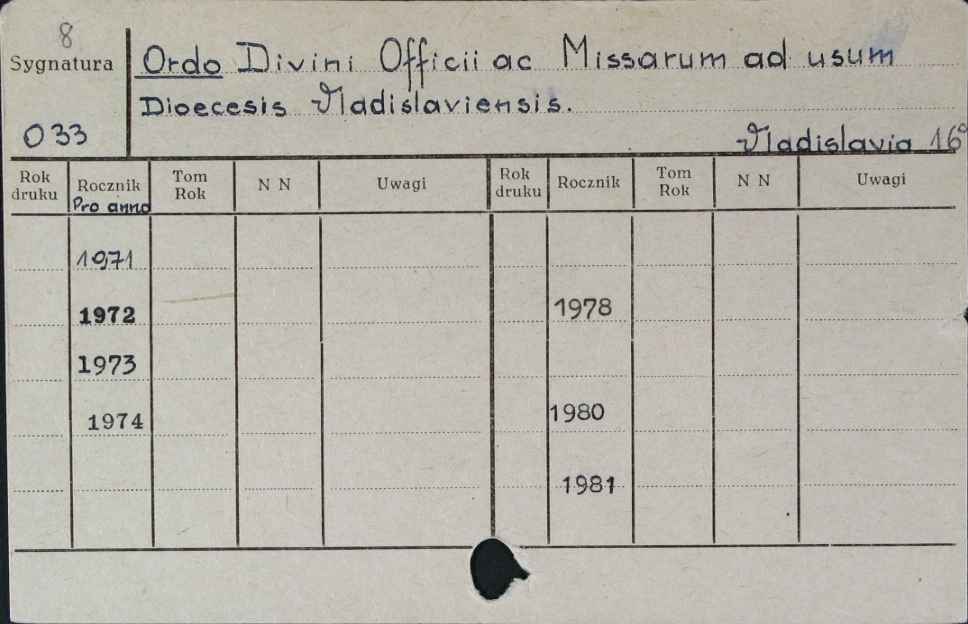 8
Sygnatura
Ordo Divini Officii ac Missarum ad usum
Dioecesis Vladislaviensis.
033
Vladislavia 16°
Rok druku Rocznik Tom Rok N N Uwagi Rok druku Rocznik Tom Rok N N Uwagi
Pro anno
1971
1972 1978
1973
1974 1980
1981